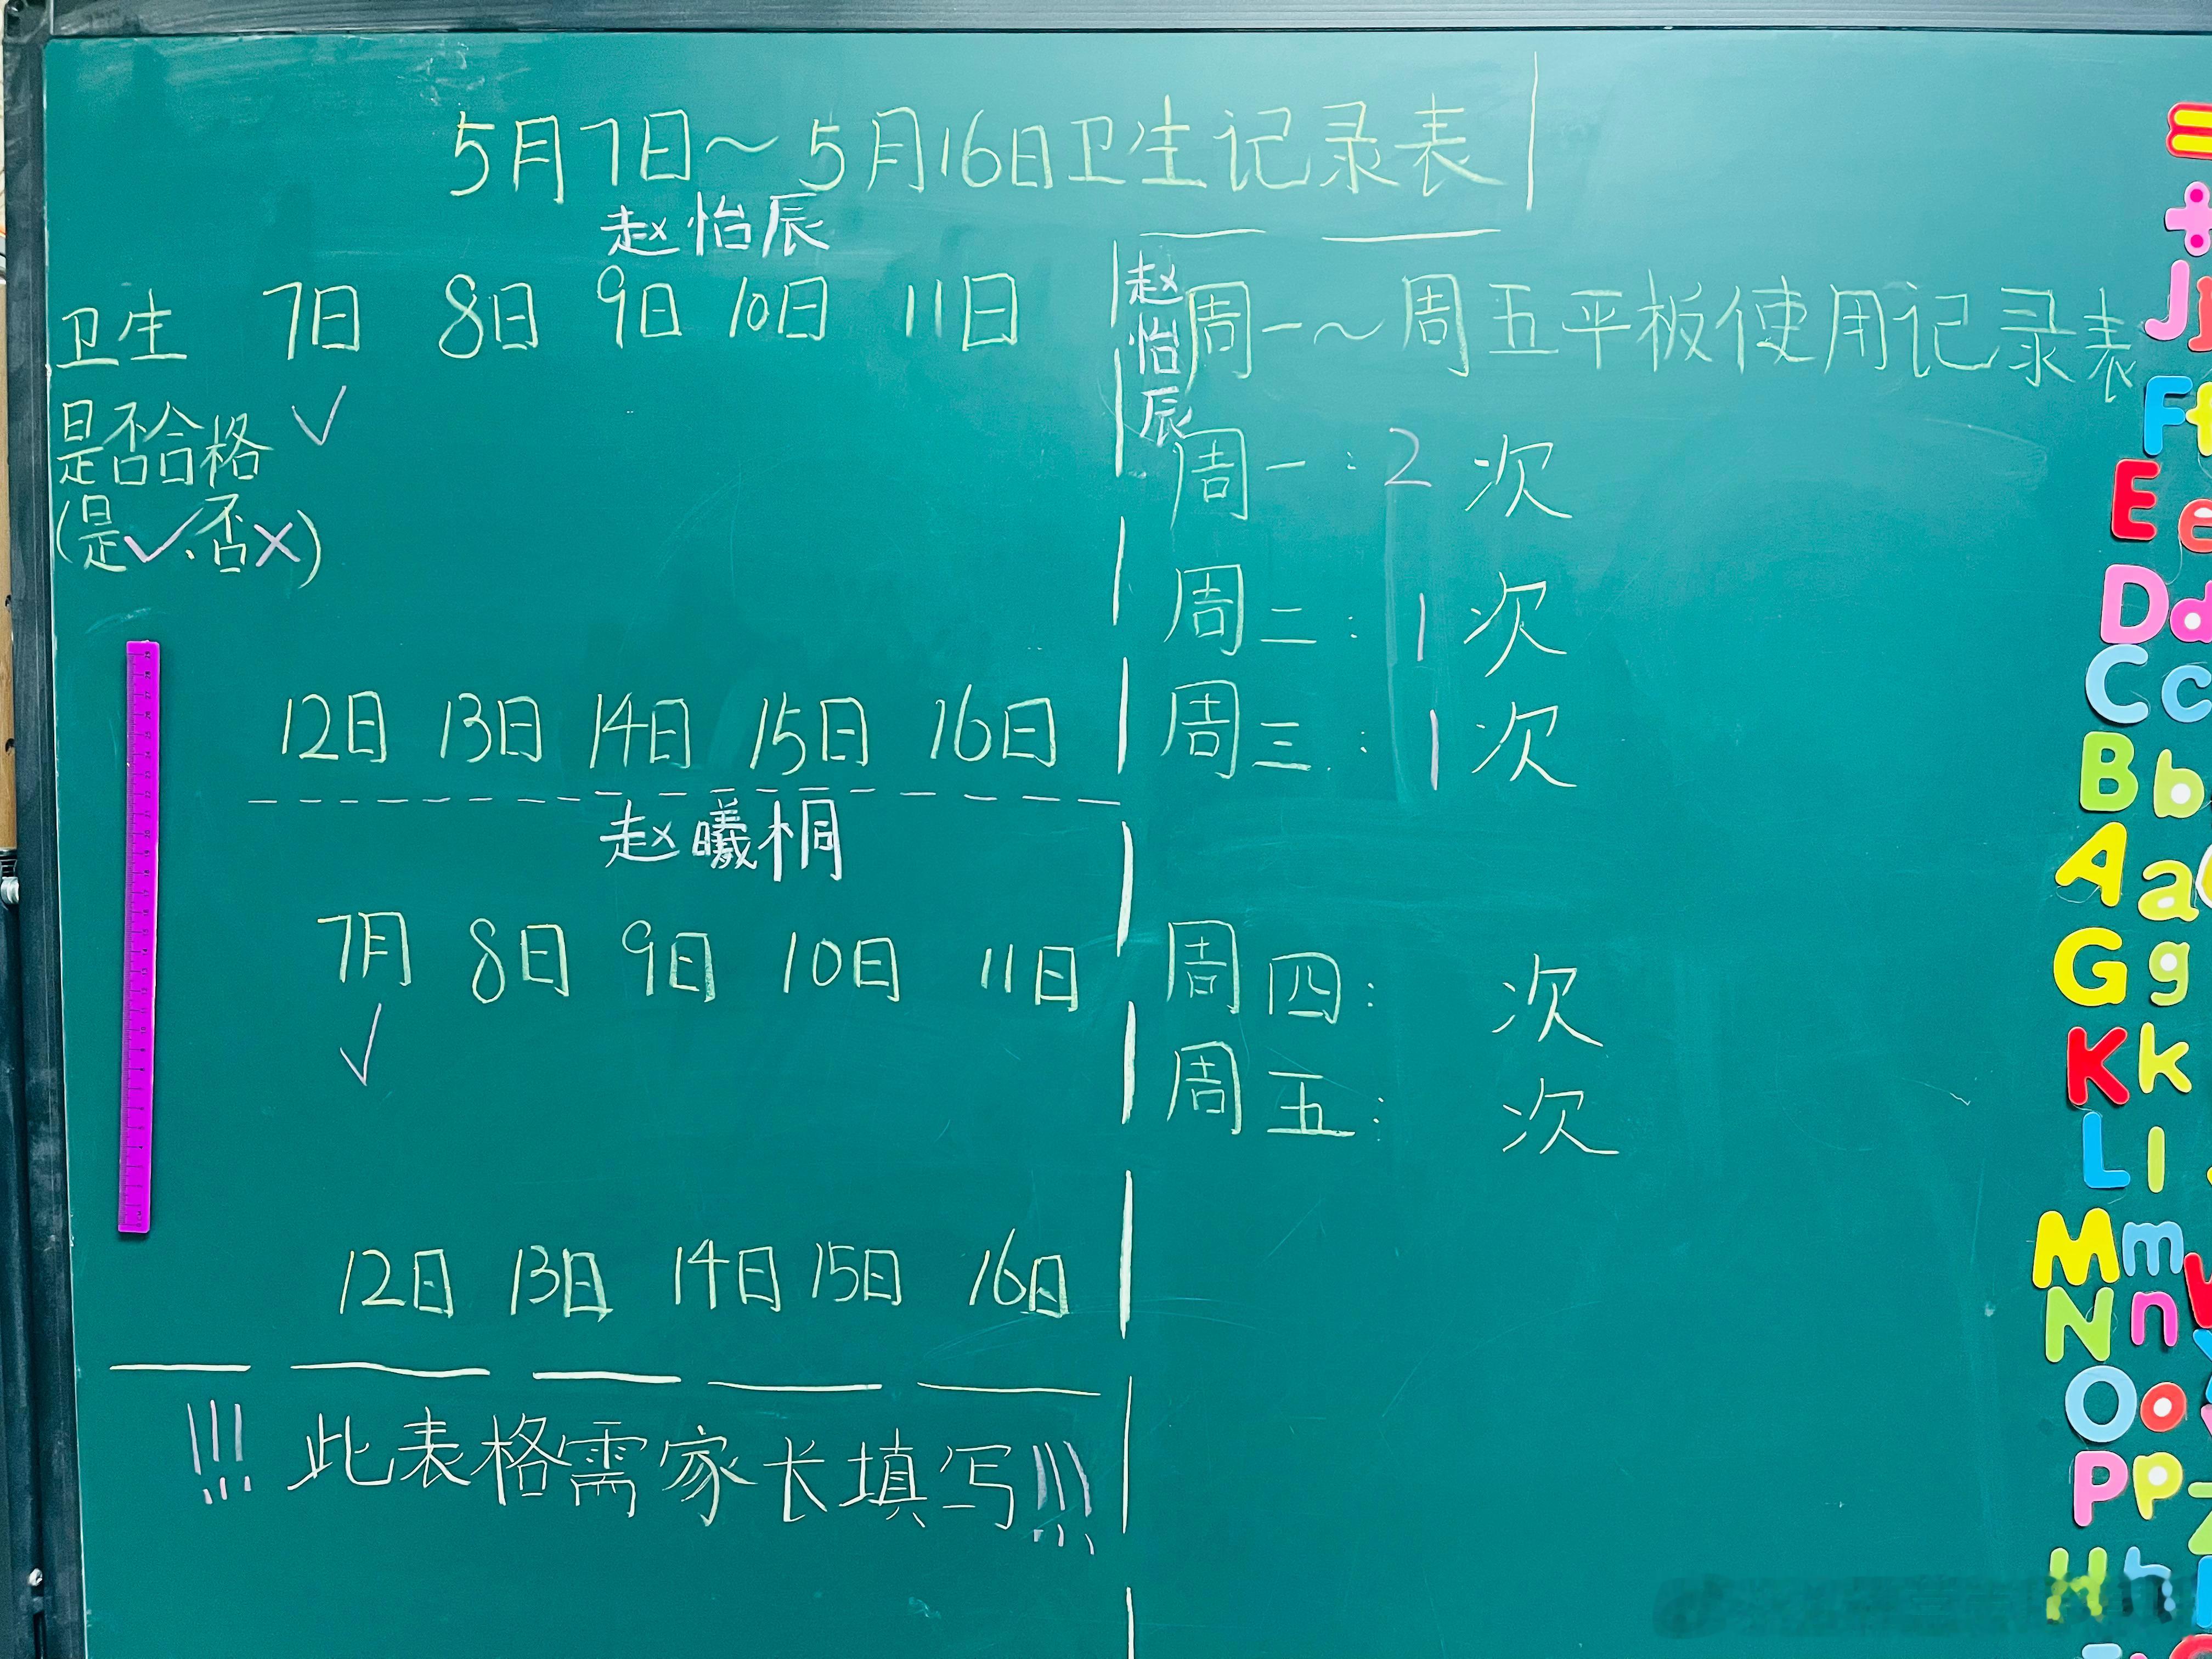 5月7日～5月16日卫生记录表
赵怡辰
卫生 7日 8日 9日 10日 11日
是否合格 ✓
(是✓、否×)
12日 13日 14日 15日 16日
赵曦桐
7月 8日 9日 10日 11日
✓
12日 13日 14日 15日 16日
!!! 此表格需家长填写!!!
赵怡辰
周一～周五平板使用记录表
周一：2次
周二：1次
周三：1次
周四： 次
周五： 次
=
+
J j
F f
E e
D d
C c
B b
A a
G g
K k
L l
M m
N n
O o
P p
H h